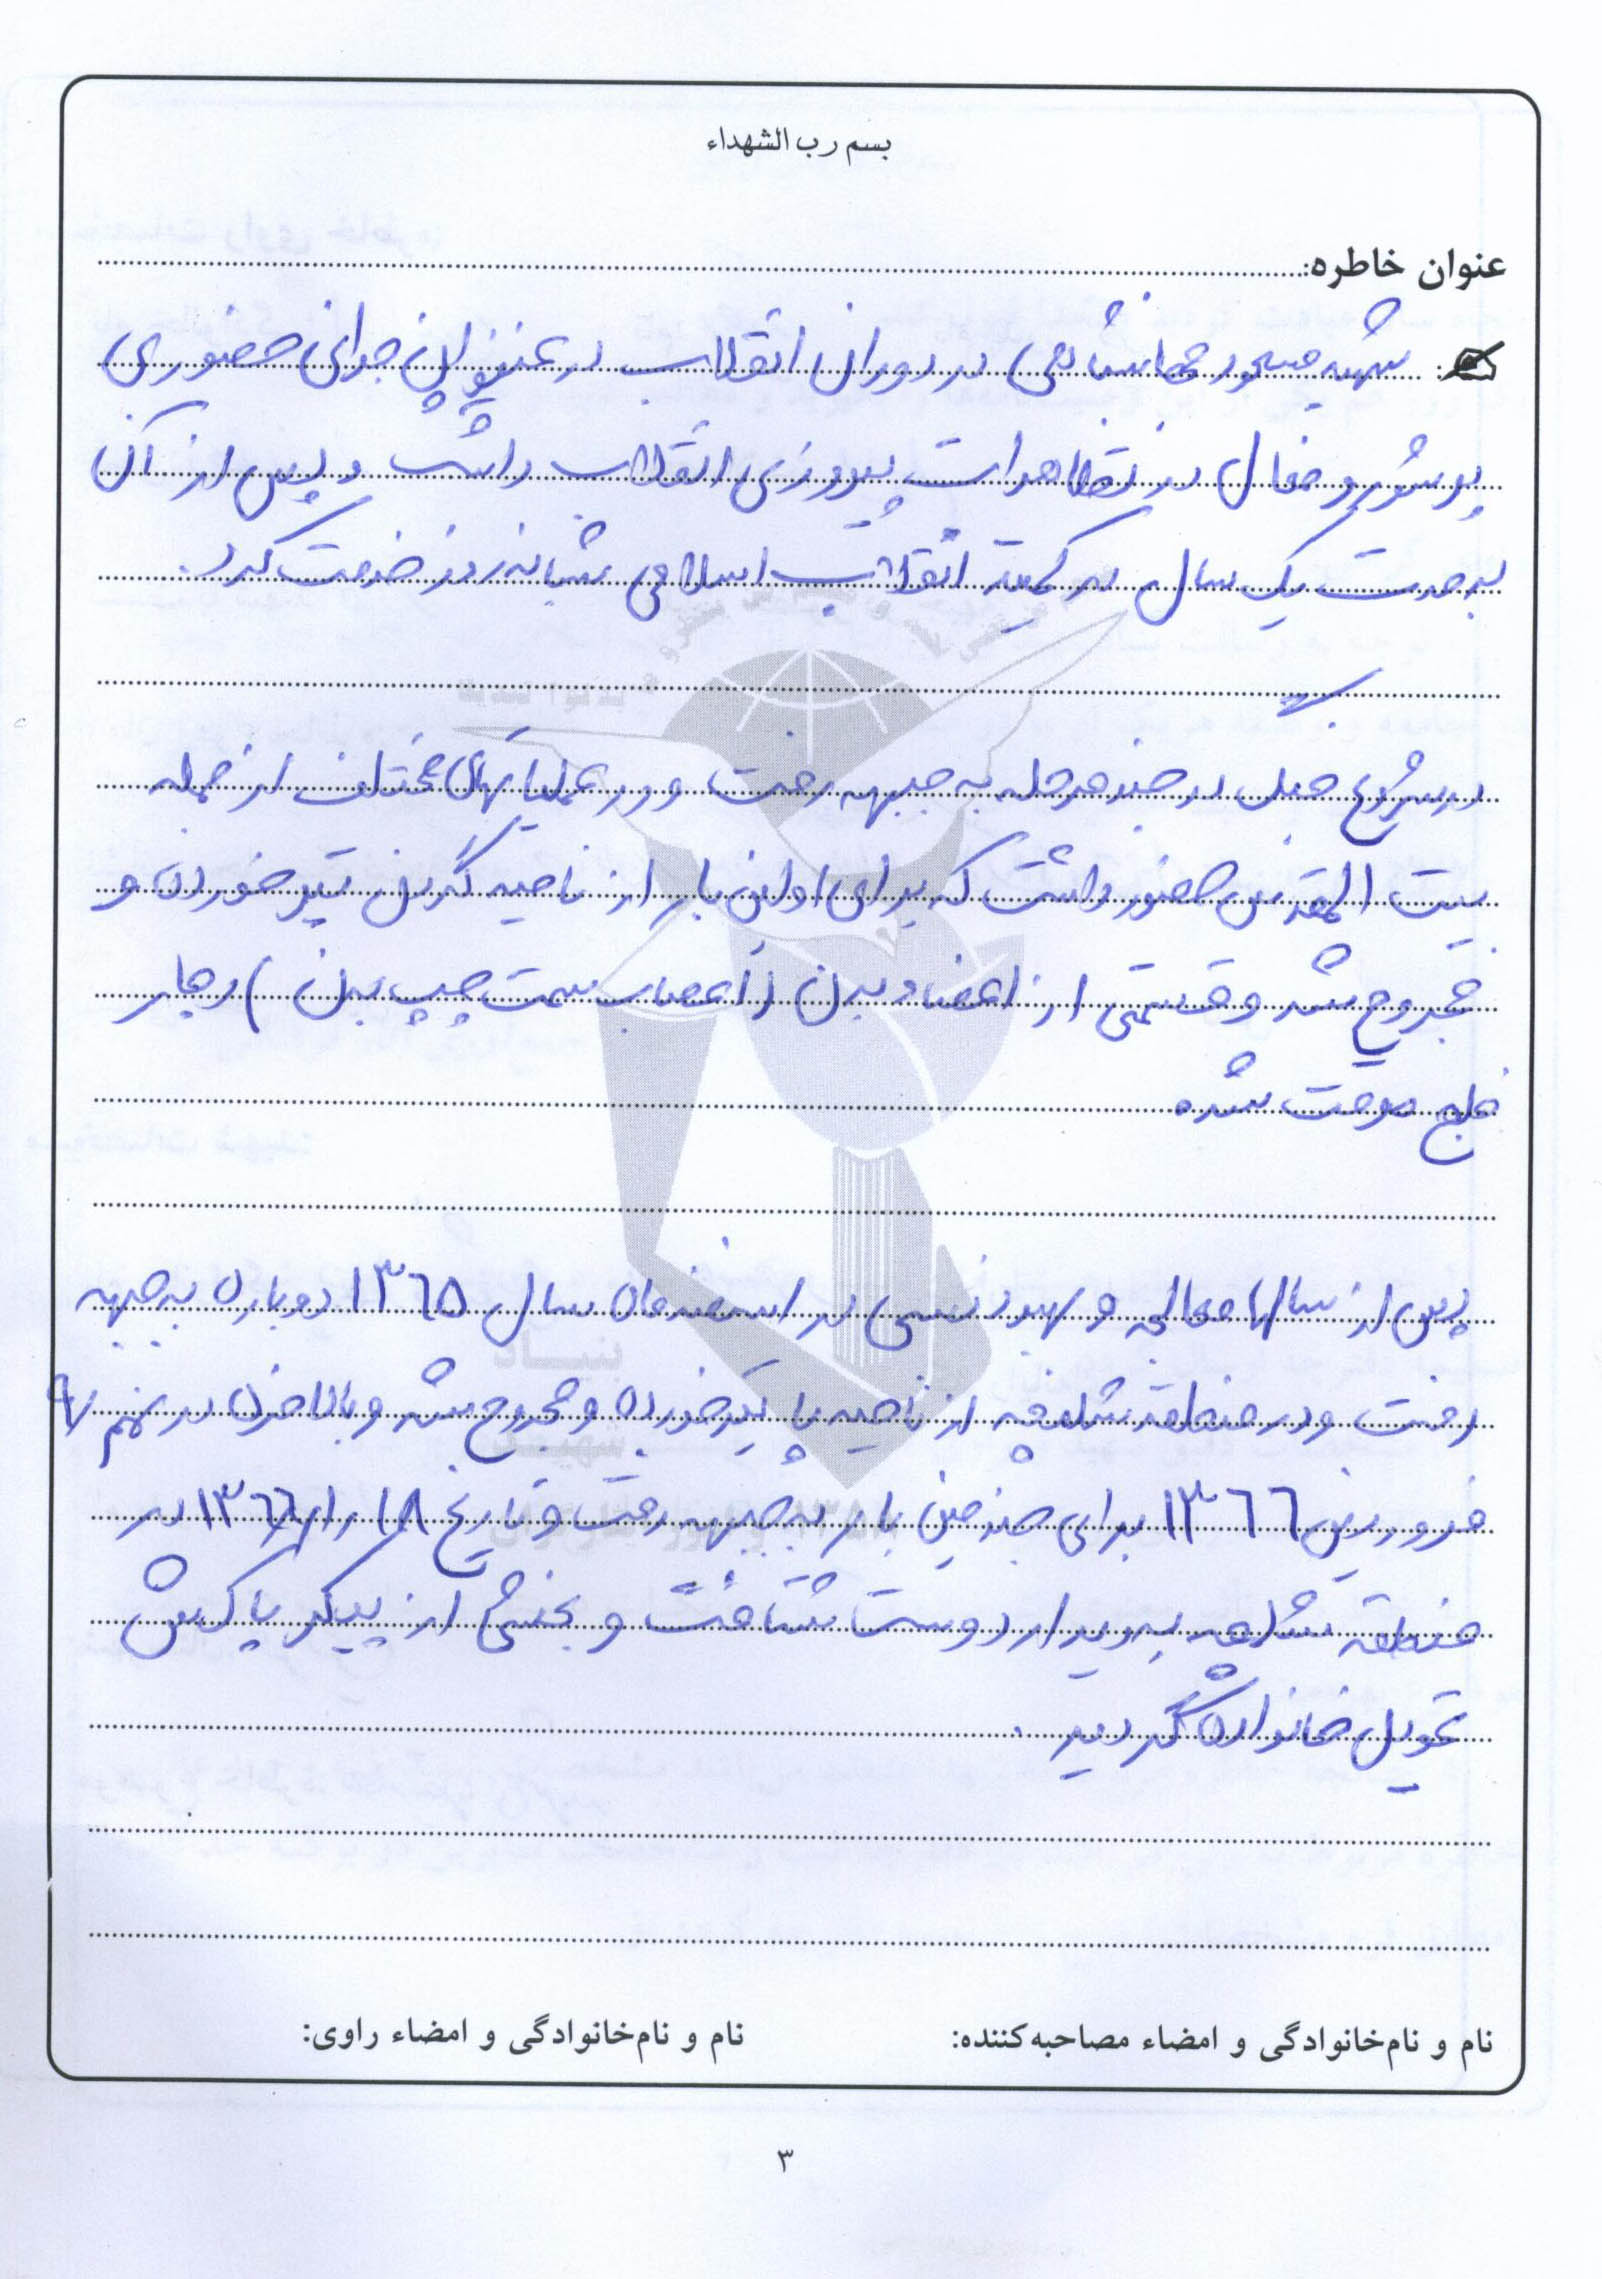 بسم رب الشهداء
عنوان خاطره:
شهید مسعود در دوران انقلاب در عنفوان جوانی حضوری
پرشور و فعال در تظاهرات پیروزی انقلاب داشت و پس از آن
به مدت یک سال در کمیته انقلاب اسلامی شبانه روز خدمت کرد.
در شروع جنگ در چند مرحله به جبهه رفت و در عملیاتهای مختلف از جمله
بیت المقدس حضور داشت که برای اولین بار از ناحیه گردن تیر خوردن و
مجروح شد و قسمتی از اعضاء بدن (اعصاب سمت چپ بدن) دچار
فلج موقت شده
پس از سالها معالجه و بهبود نسبی در اسفندماه سال ۱۳۶۵ دوباره به جبهه
رفت و در منطقه شلمچه از ناحیه پا تیر خورده و مجروح شد و بالاخره در نهم
فروردین ۱۳۶۶ برای چندمین بار به جبهه رفت و تاریخ ۱۸/۱/۱۳۶۶ در
منطقه شلمچه به دیدار دوست شتافت و بخشی از پیکر پاکش
تحویل خانواده گردید.
نام و نام‌خانوادگی و امضاء مصاحبه‌کننده: نام و نام‌خانوادگی و امضاء راوی:
۳